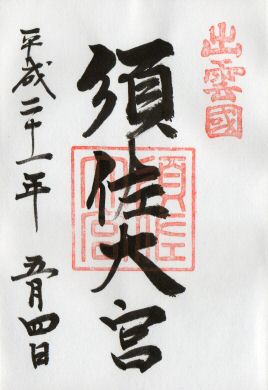 出雲國
須佐大宮
須佐大宮
平成二十一年 五月四日